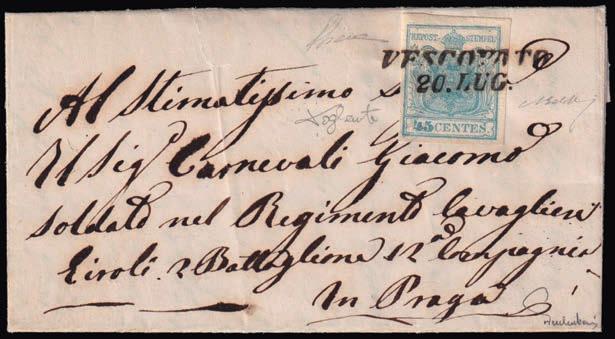 KK POST-STEMPEL
VESCOVATO
20. LUG.
45 CENTES.
Al Stimatissimo
Il Sigr Carnevali Giacomo
Soldato nel Regimento Cavaglieri
Tiroli 2 Battaglione 12a Compagnia
In Praga